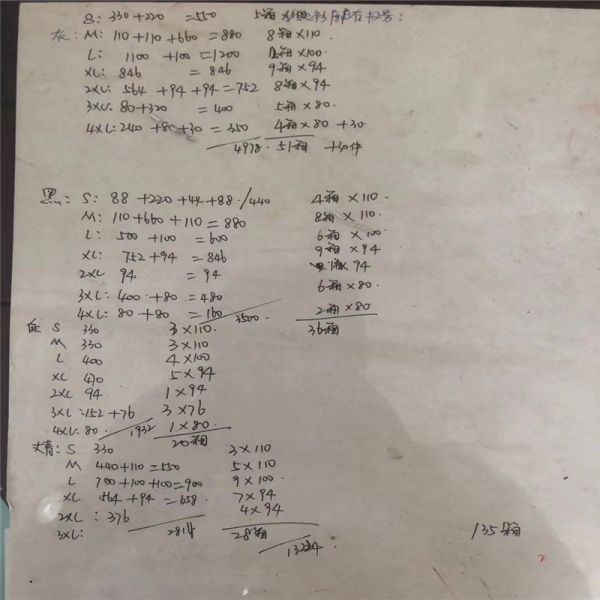 S: 330+220 =550 5箱×110
灰: M: 110+110+660=880 8箱×110.
L: 1100 +100=1200 12箱×100.
XL: 846 =846 9箱×94
2XL: 564 +94+94=752 8箱×94
3XL: 80+320 =400 5箱×80.
4XL: 240 +80+30=350 4箱×80 +30.
4978. 51箱 +30件
黑: S: 88+220+44+88 /440 4箱×110.
M: 110+660+110=880 8箱×110.
L: 500 +100=600 6箱×100
XL: 752+94=846 9箱×94
2XL 94 =94 1箱×94
3XL: 400 +80=480 6箱×80.
4XL: 80+80 =160 3500. 2箱×80
36箱
白: S 330 3×110.
M 330 3×110
L 400 4×100
XL 470 5×94
2XL 94 1×94
3XL: 152+76 3×76
4XL: 80. 1932 1×80
20箱
丈青: S 330 3×110
M 440+110=550 5×110
L 700+100+100=900 9×100
XL 564+94=658. 7×94
2XL: 376 4×94
3XL: 2814 28箱
13224 135箱